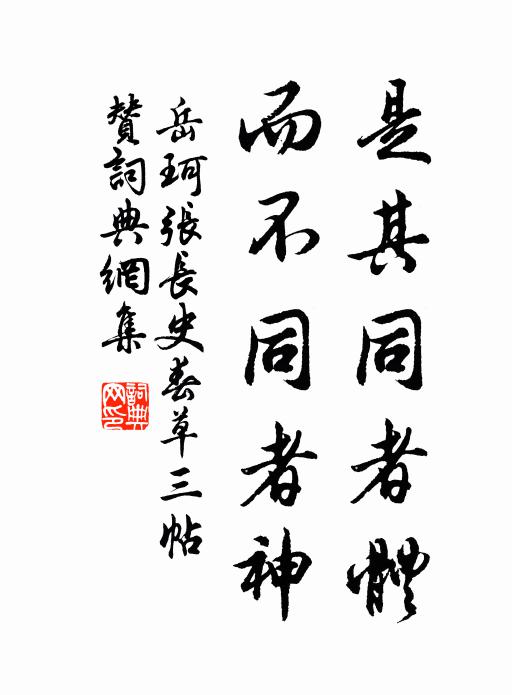 是其同者體
而不同者神
岳珂張長史春草三帖
贊詞典網集
詞典网印